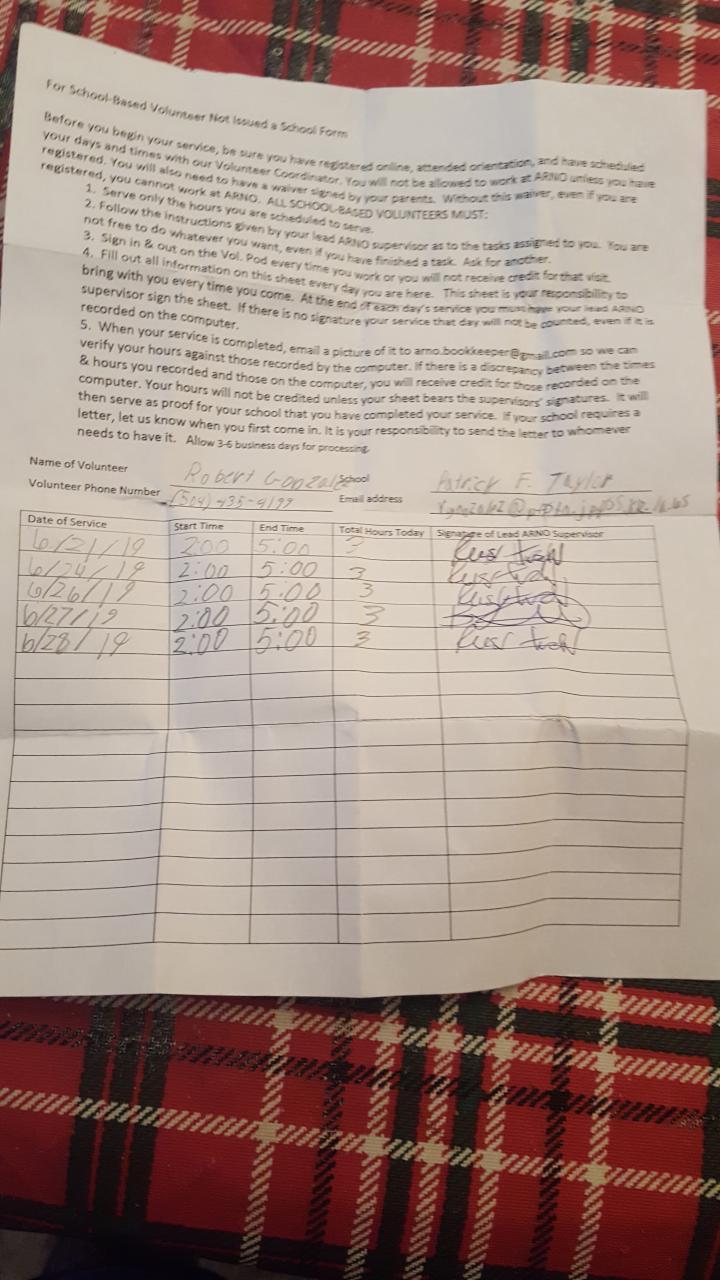 For School-Based Volunteer Not Issued a School Form
Before you begin your service, be sure you have registered online, attended orientation, and have scheduled
your days and times with our Volunteer Coordinator. You will not be allowed to work at ARNO unless you have
registered. You will also need to have a waiver signed by your parents. Without this waiver, even if you are
registered, you cannot work at ARNO. ALL SCHOOL-BASED VOLUNTEERS MUST:
1. Serve only the hours you are scheduled to serve.
2. Follow the instructions given by your lead ARNO supervisor as to the tasks assigned to you. You are
not free to do whatever you want, even if you have finished a task. Ask for another.
3. Sign in & out on the Vol. Pod every time you work or you will not receive credit for that visit.
4. Fill out all information on this sheet every day you are here. This sheet is your responsibility to
bring with you every time you come. At the end of each day's service you must have your lead ARNO
supervisor sign the sheet. If there is no signature your service that day will not be counted, even if it is
recorded on the computer.
5. When your service is completed, email a picture of it to arno.bookkeeper@gmail.com so we can
verify your hours against those recorded by the computer. If there is a discrepancy between the times
& hours you recorded and those on the computer, you will receive credit for those recorded on the
computer. Your hours will not be credited unless your sheet bears the supervisors' signatures. It will
then serve as proof for your school that you have completed your service. If your school requires a
letter, let us know when you first come in. It is your responsibility to send the letter to whomever
needs to have it. Allow 3-6 business days for processing
Name of Volunteer Robert Gonzalez School Patrick F. Taylor
Volunteer Phone Number (504)-435-4199 Email address
Date of Service Start Time End Time Total Hours Today Signature of Lead ARNO Supervisor
6/21/19 2:00 5:00 3
6/24/19 2:00 5:00 3
6/26/19 2:00 5:00 3
6/27/19 2:00 5:00 3
6/28/19 2:00 5:00 3